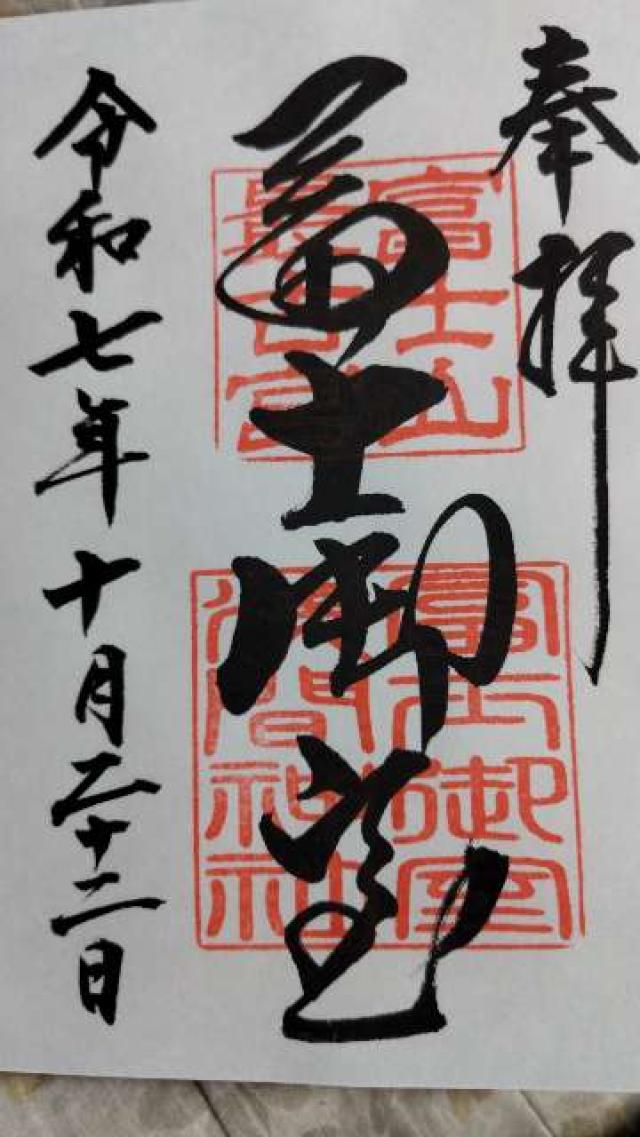 奉拝
富士山
最古宮
富士御室
富士御室
浅間神社
令和七年十月二十二日